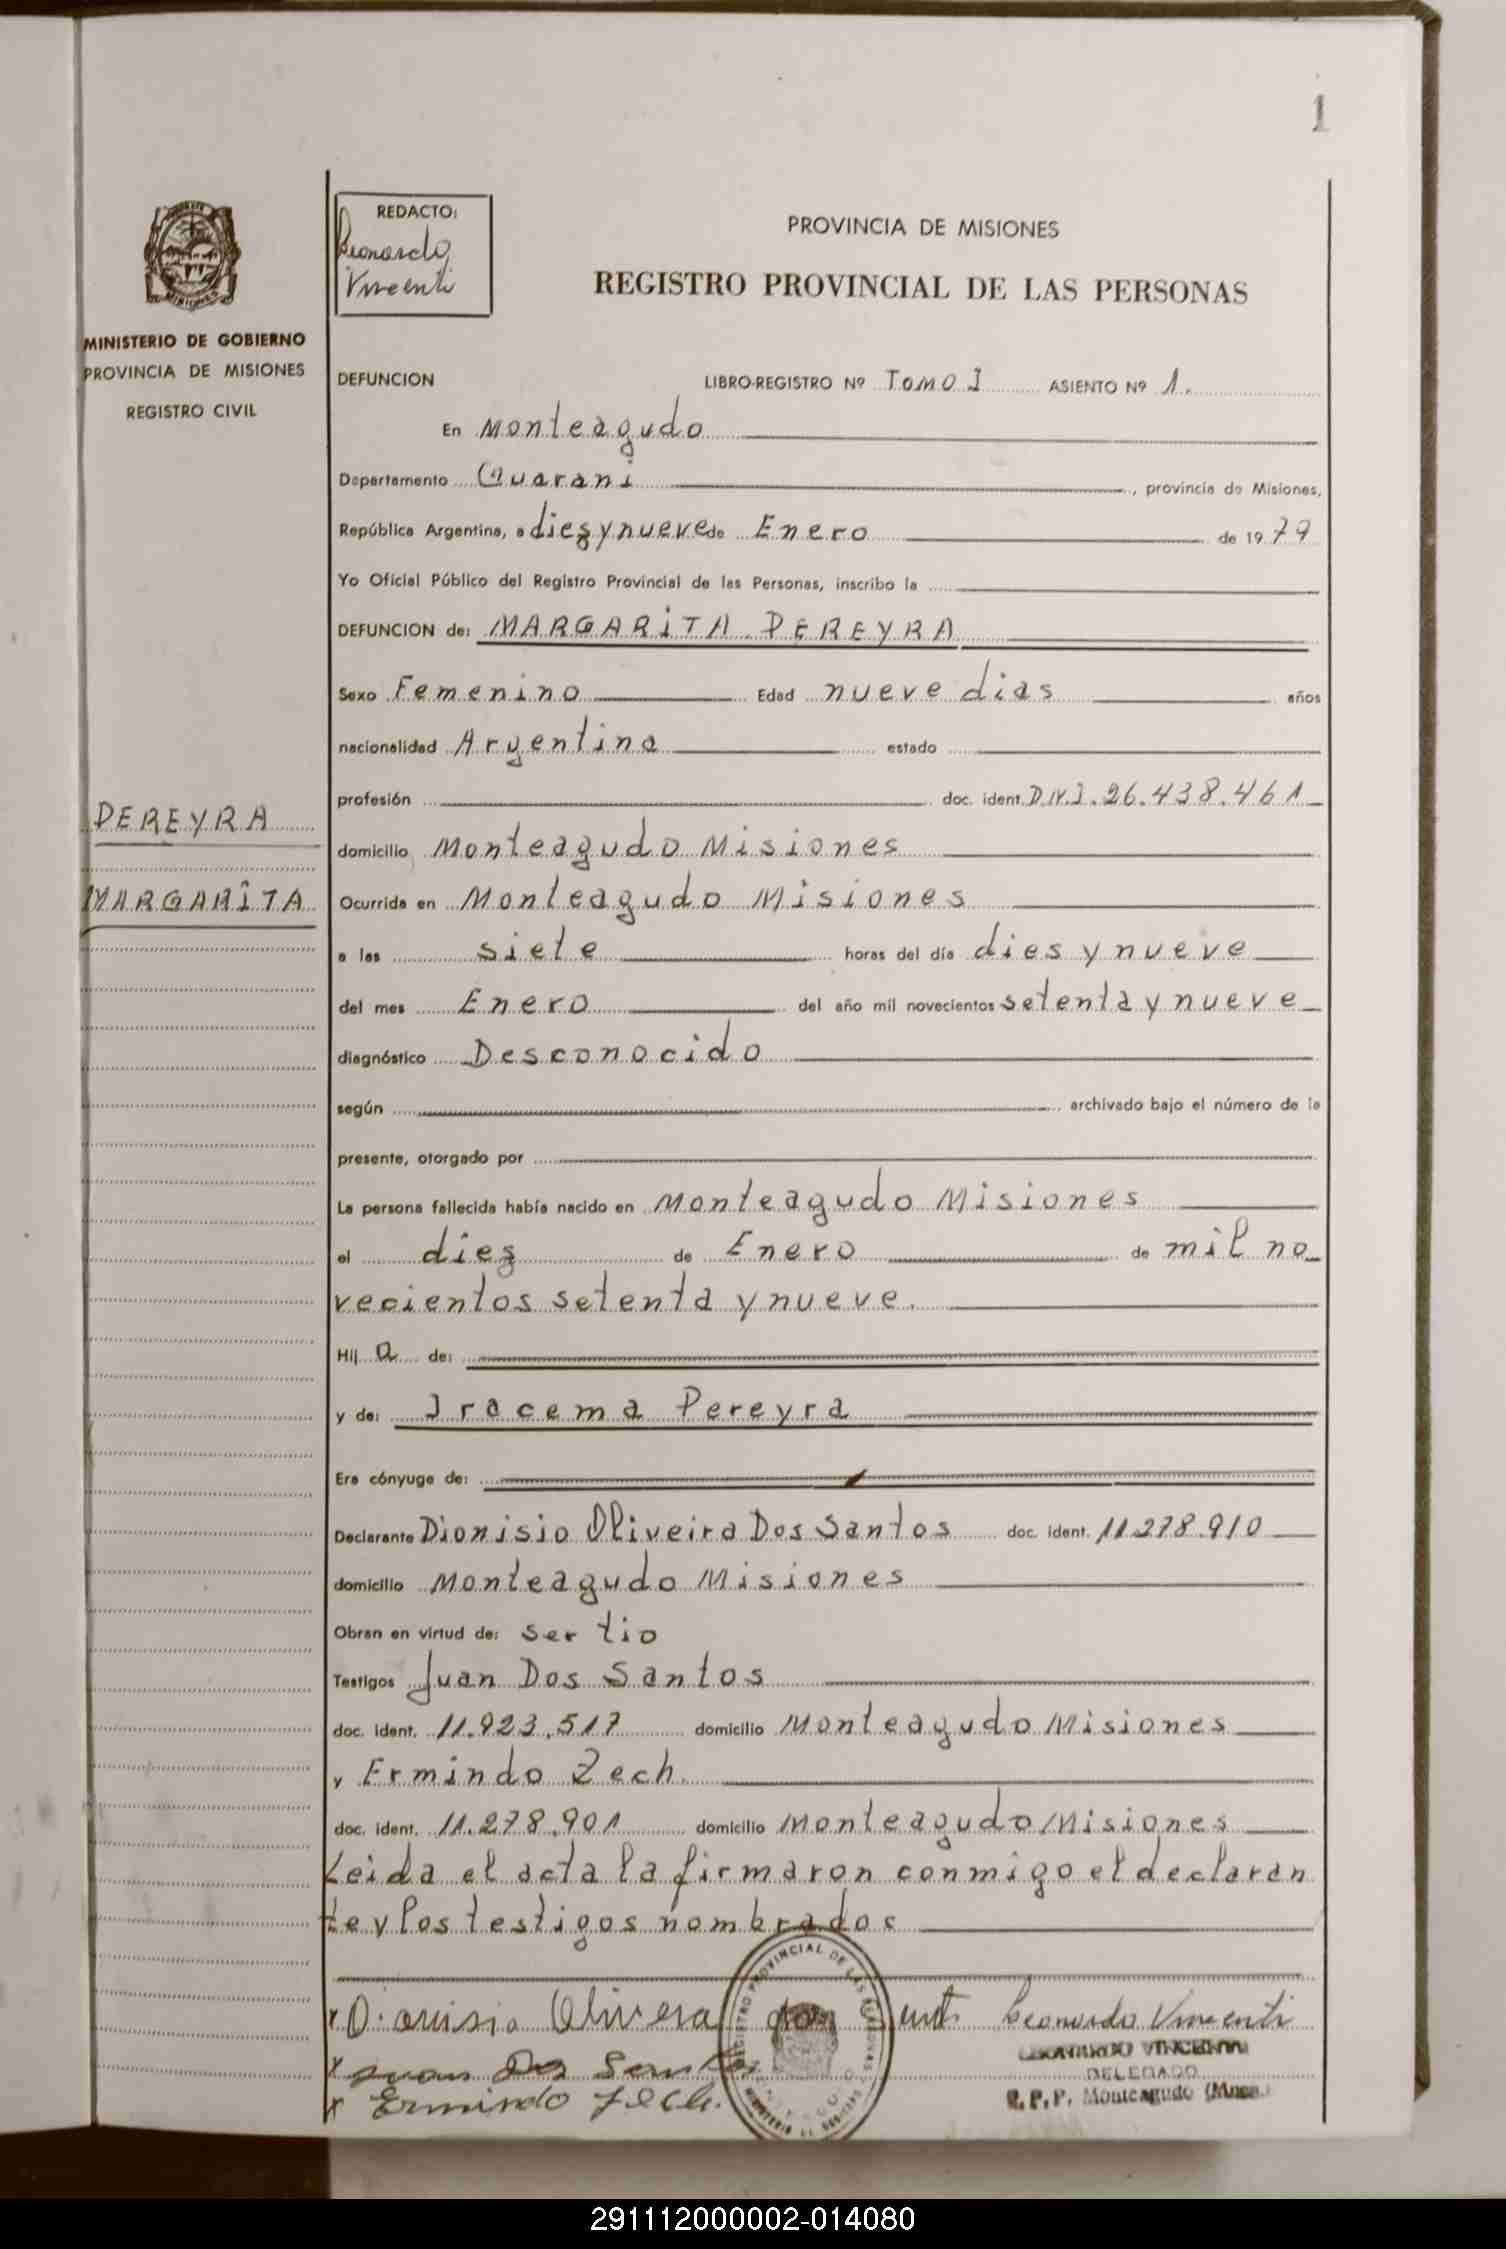 1
MISIONES
MINISTERIO DE GOBIERNO
PROVINCIA DE MISIONES
REGISTRO CIVIL
PEREYRA
MARGARITA
REDACTO:
Leonardo
Vincenti
PROVINCIA DE MISIONES
REGISTRO PROVINCIAL DE LAS PERSONAS
DEFUNCION LIBRO-REGISTRO Nº TOMO I ASIENTO Nº 1.
En Monteagudo
Departamento Guarani, provincia de Misiones,
República Argentina, a diez y nueve de Enero de 1979
Yo Oficial Público del Registro Provincial de las Personas, inscribo la
DEFUNCION de: MARGARITA PEREYRA
Sexo Femenino Edad nueve dias años
nacionalidad Argentina estado
profesión doc. ident. D.N.I. 26.438.461
domicilio Monteagudo Misiones
Ocurrida en Monteagudo Misiones
a las siete horas del día dies y nueve
del mes Enero del año mil novecientos setenta y nueve
diagnóstico Desconocido
según archivado bajo el número de la
presente, otorgado por
La persona fallecida había nacido en Monteagudo Misiones
el diez de Enero de mil no
vecientos setenta y nueve.
Hij a de:
y de: Iracema Pereyra
Era cónyuge de:
Declarante Dionisio Oliveira Dos Santos doc. ident. 11.278.910
domicilio Monteagudo Misiones
Obran en virtud de: ser tio
Testigos Juan Dos Santos
doc. ident. 11.923.517 domicilio Monteagudo Misiones
y Ermindo Zech.
doc. ident. 11.278.901 domicilio Monteagudo Misiones
Leida el acta la firmaron conmigo el declaran
te y los testigos nombrados
x Dionisio Olivera dos Leonardo Vincenti
LEONARDO VINCENTI
x Juan Dos Santos DELEGADO
x Ermindo Zech. R.P.P. Monteagudo (Mnes.)
REGISTRO PROVINCIAL DE LAS PERSONAS
291112000002-014080